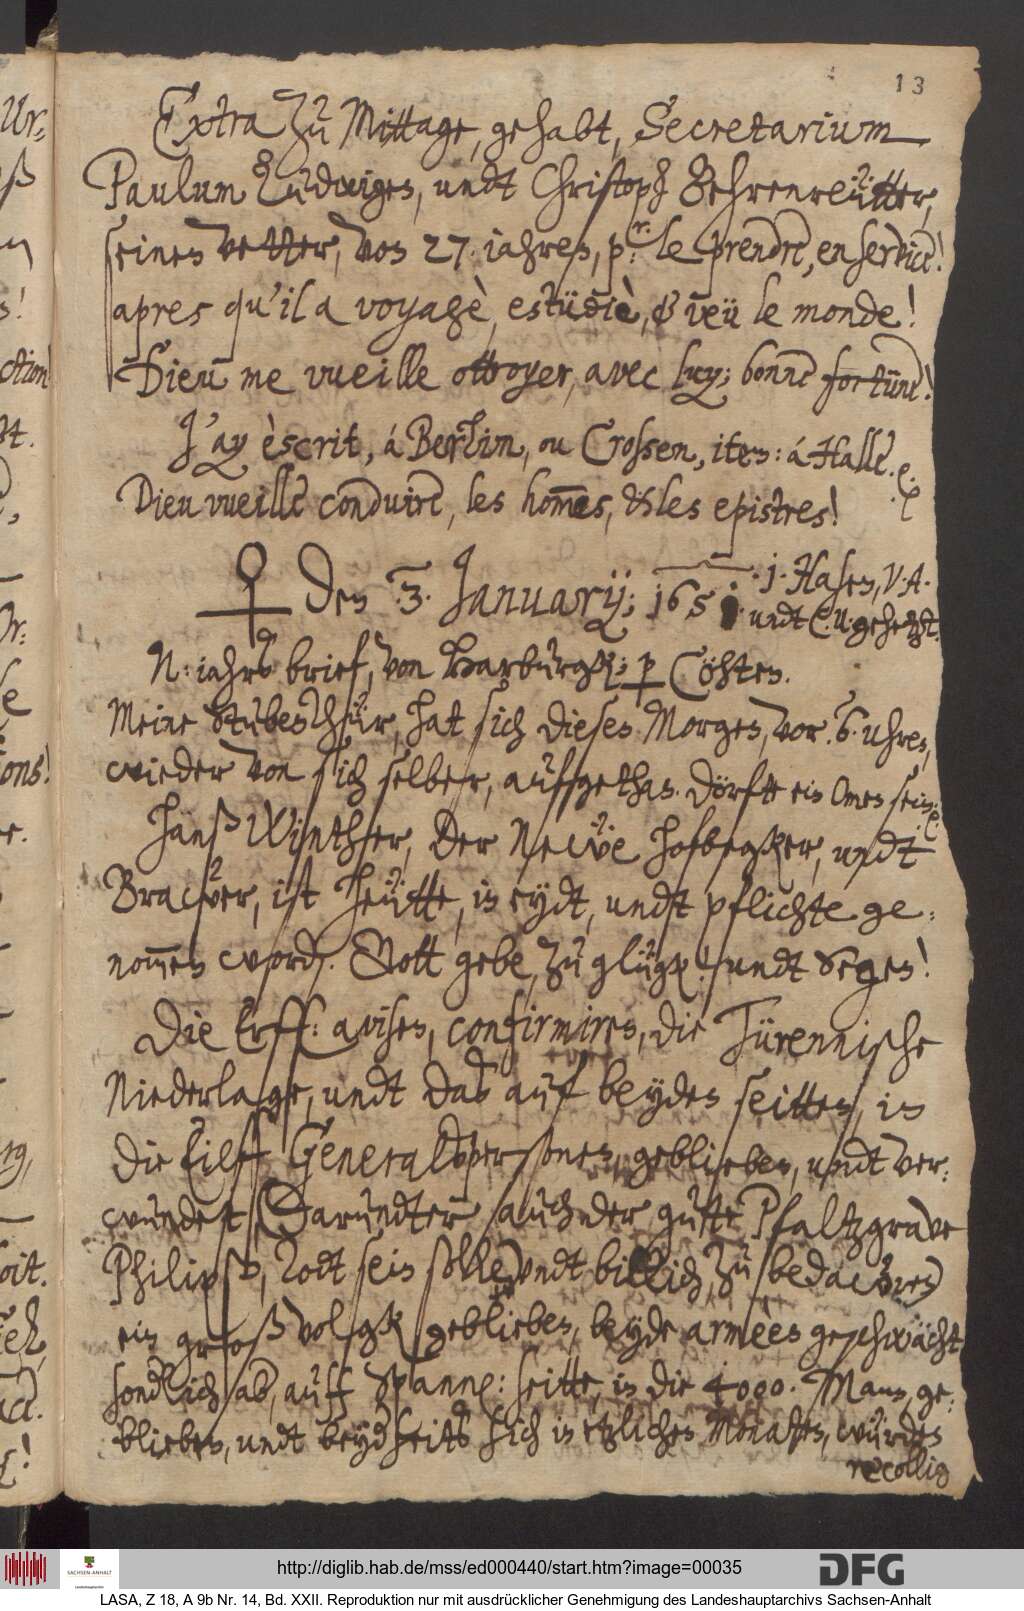 13
Extra zu Mittage, gehabt, Secretarium
Paulum Ludwigen, undt Christoph Behrenreütter,
seinen vetter, von 27. iahren, p.r le prendre, en service!
apres qu'il a voyagè, estüdiè, & veü le monde!
Dieu me vueille ottroyer, avec luy; bonne fortüne!
J'ay èscrit, á Berlin, ou Crossen, item: á Halle.
Dieu vueille conduire, les hom̅es, & les epistres!
♀ Den 3. January; 1651.
1. Hasen, V. A.
undt C. U. gehetzt.
N: iahrs brief, von Harburgk; p Cöhten.
Meine Stubenthür, hat sich diesen Morgen, vor. 6. uhren,
wieder von sich selber, aufgethan. Dörfte ein Omen sein.
Hanß Winther, Der Newe Hofbegker, undt
Brawer, ist heütte, in eydt, undt pflichte ge-
nom̅en word. Gott gebe, zu glügk! undt Segen!
Die Erff: avisen, confirmiren, die Türennische
Niederlage, undt daß auf beyden seitten, in
die Eilff Generalspersonen, geblieben, undt ver-
wundet, Darundter auch der gute Pfaltzgrave
Philips, Todt sein solle, undt billich, zu bedawren
ein groß volgk geblieben, beyde armèen geschwächt
sond(er)lich aber, auff Spann: seitte, in die 4000. Mann, ge-
blieben, undt beyderseits sich in etzlichen Monahten, würden
recollig
http://diglib.hab.de/mss/ed000440/start.htm?image=00035
DFG
SACHSEN-ANHALT
LASA, Z 18, A 9b Nr. 14, Bd. XXII. Reproduktion nur mit ausdrücklicher Genehmigung des Landeshauptarchivs Sachsen-Anhalt